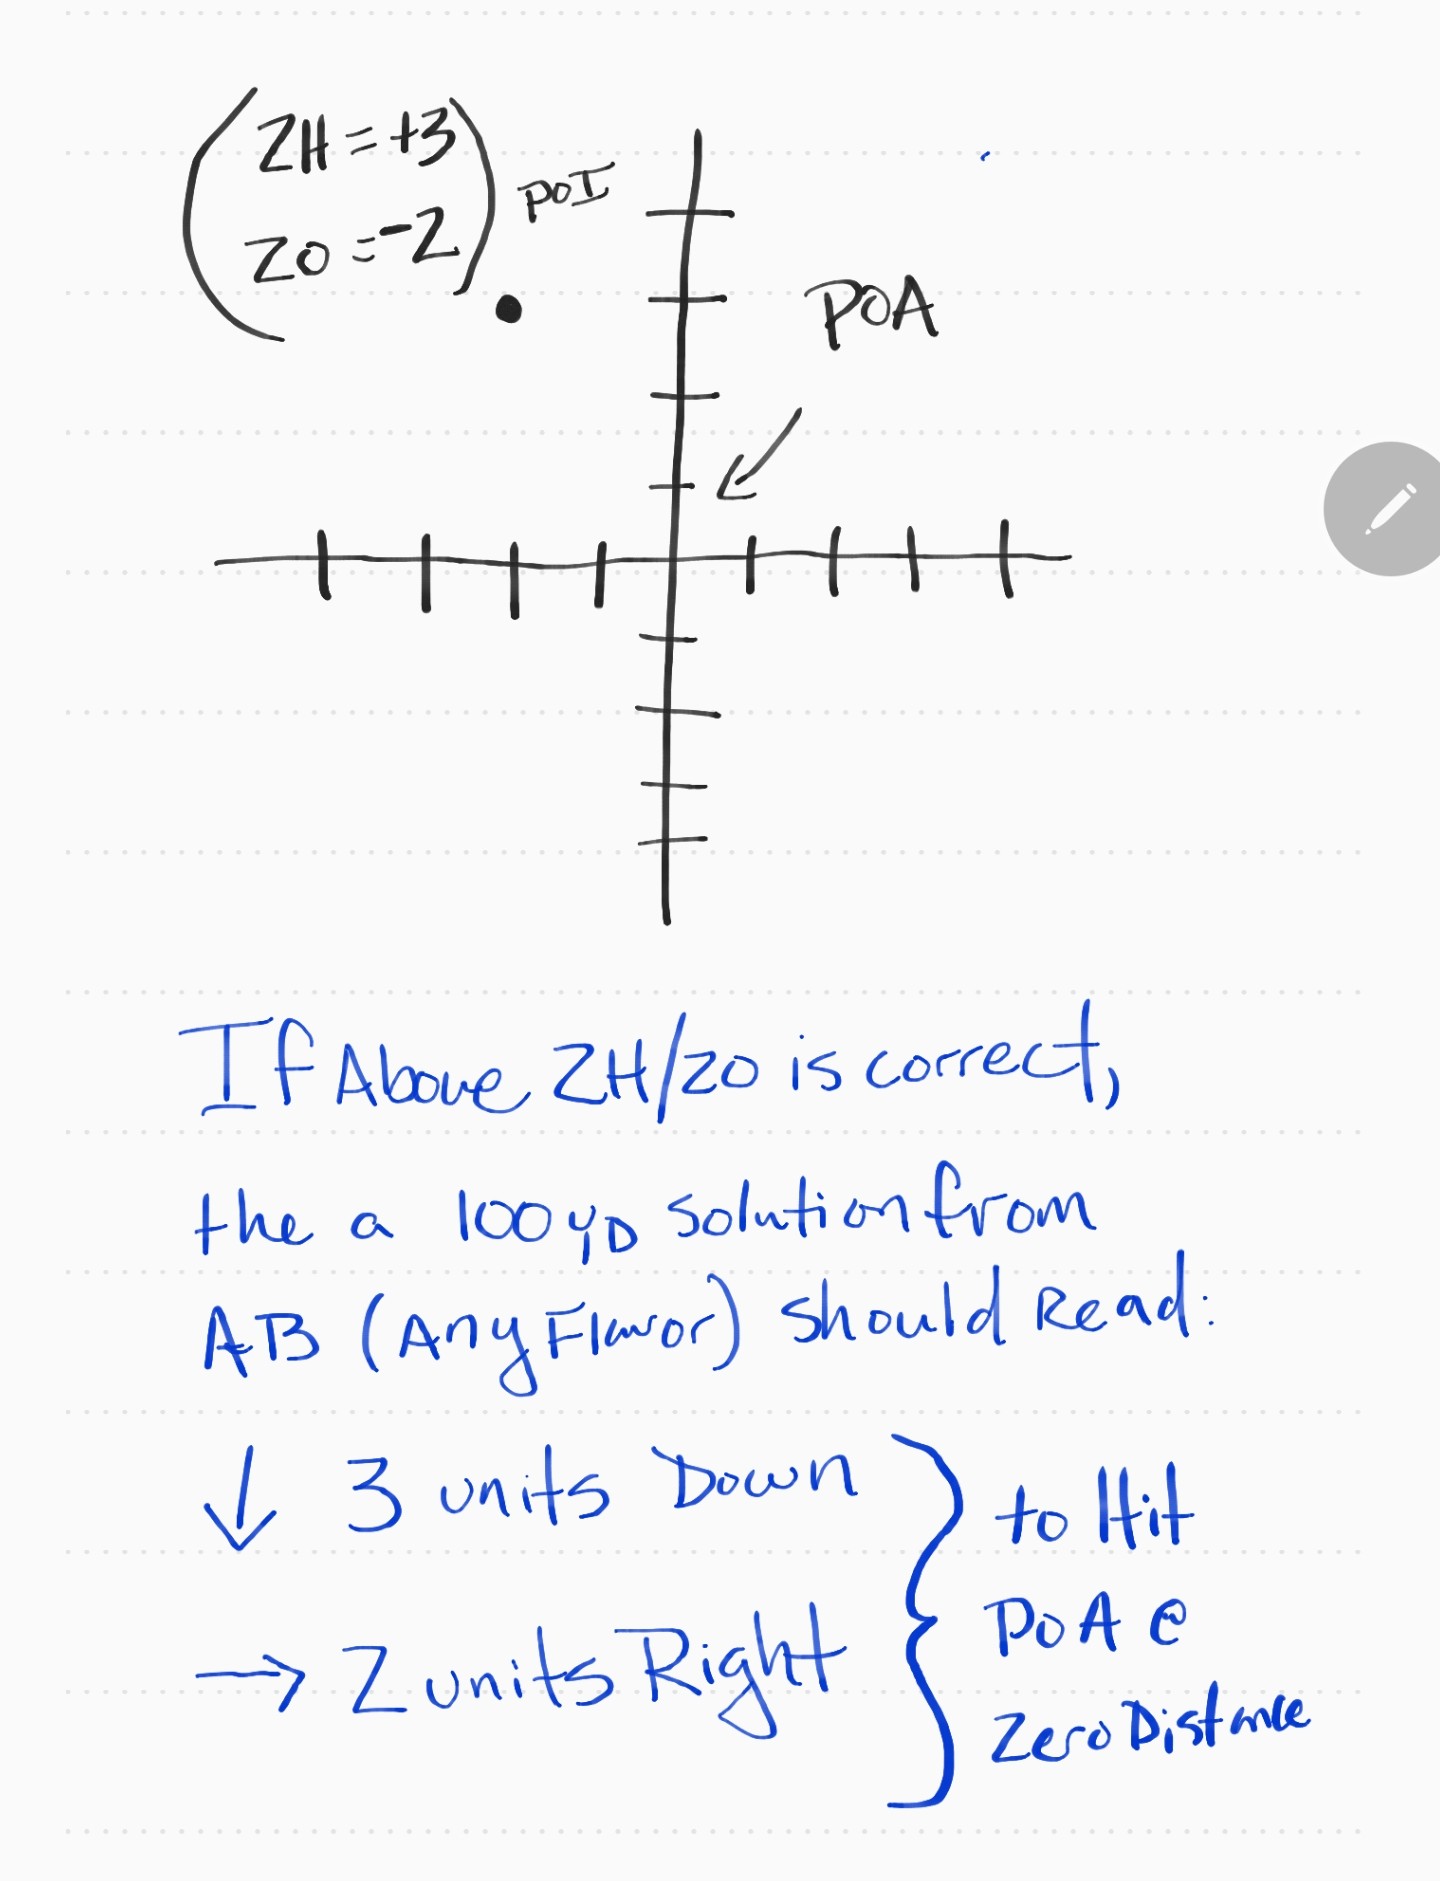 (ZH = +3
ZO = -2)
POI
POA
If Above ZH/ZO is correct,
the a 100 yD solution from
AB (Any Flavor) should Read:
↓ 3 units Down
→ 2 units Right
} to Hit
POA @
Zero Distance